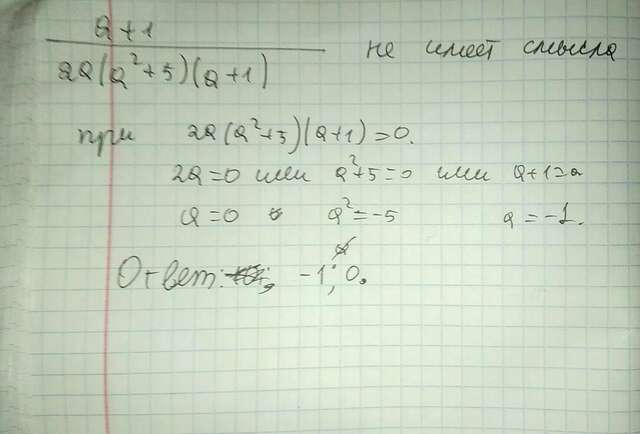 a+1
2a(a²+5)(a+1) не имеет смысла
при 2a(a²+5)(a+1)=0.
2a=0 или a²+5=0 или a+1=0
a=0 a²=-5 a=-1.
Ответ: -1; 0.